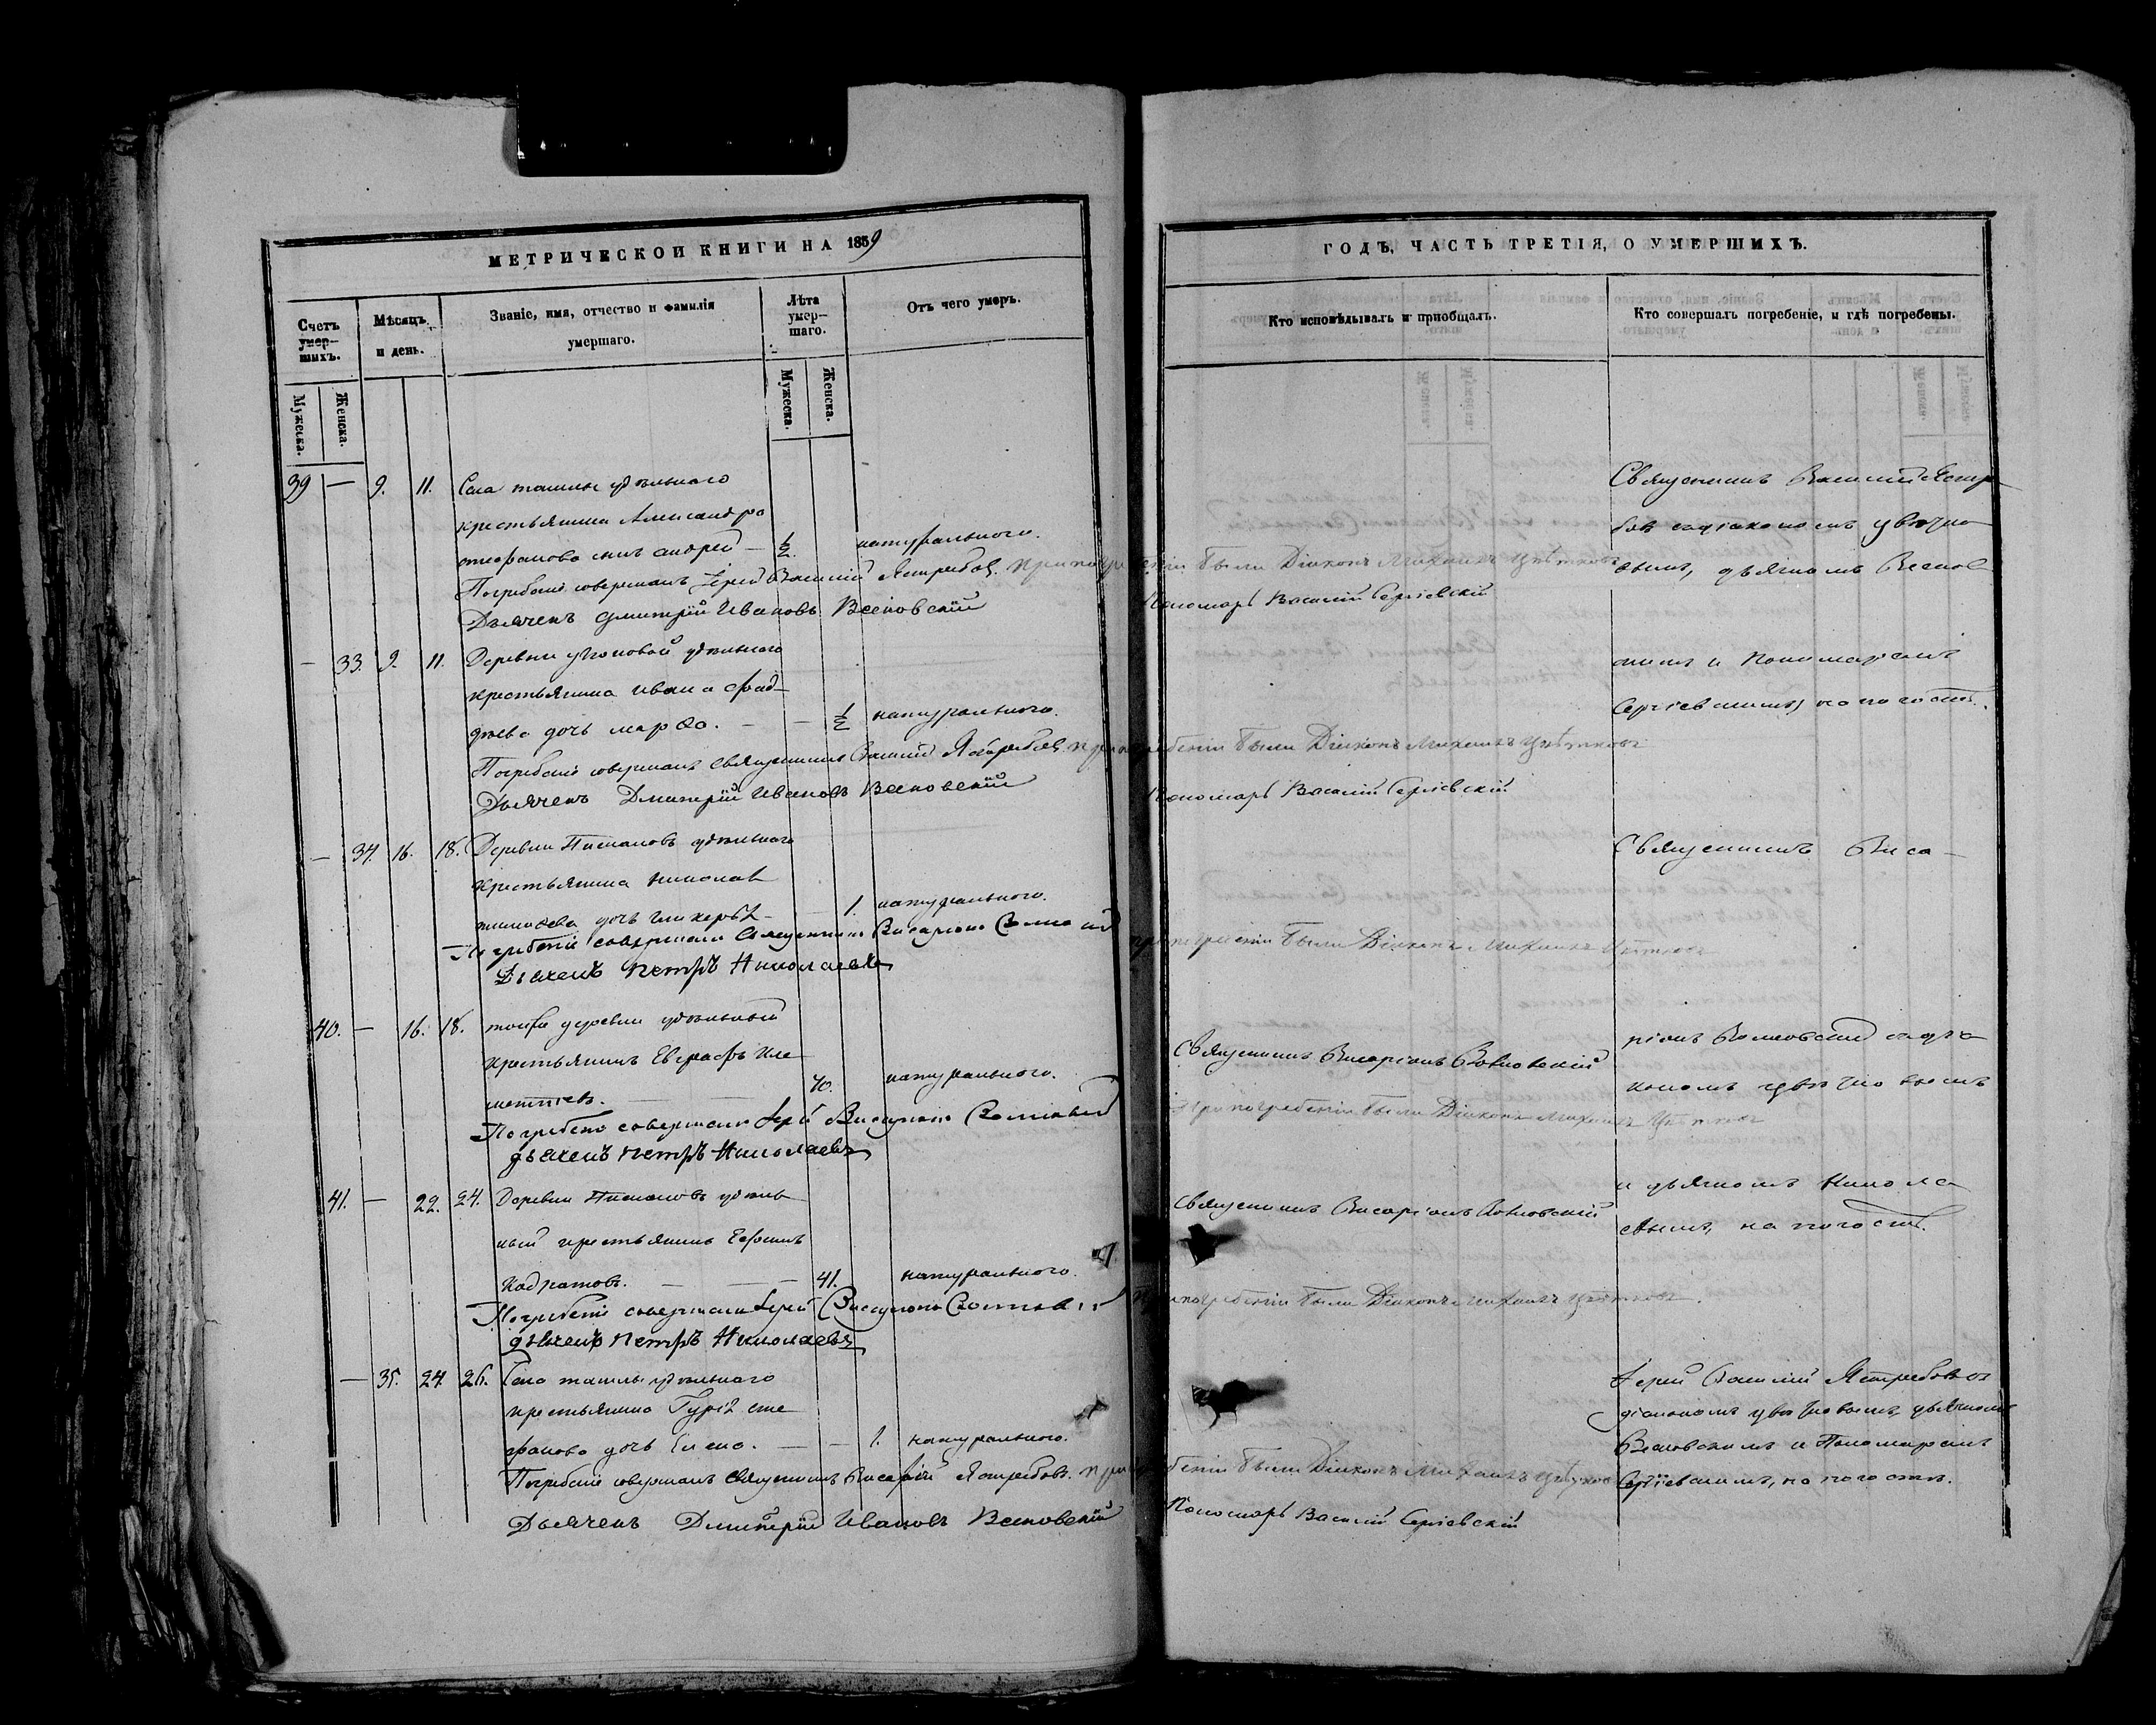 МЕТРИЧЕСКОЙ КНИГИ НА 1859
Счетъ умер-
шихъ.
Мѣсяцъ
и день.
Званіе, имя, отчество и фамилія
умершаго.
Лѣта
умер-
шаго.
Отъ чего умеръ.
Мужеска.
Женска.
Мужеска.
Женска.
39 — 9. 11. Села ташлы удѣльнаго
крестьянина Александра
сынъ андрей — ½. натуральнаго.
Погребеніе совершалъ Іерей Василій Ястребовъ.
Дьячекъ Дмитрій Ивановъ Весновскій
— 33. 9. 11. Деревни удѣльнаго
крестьянина ивана
дочь марѳа. — — ½ натуральнаго.
Погребеніе совершалъ священникъ Василій Ястребовъ
Дьячекъ Дмитрій Ивановъ Весновскій
— 34. 16. 18. Деревни удѣльнаго
крестьянина николая
дочь — 1. натуральнаго.
Погребеніе совершалъ Священникъ
Дьячекъ петръ Николаевъ
40. — 16. 18. тойже деревни удѣльный
крестьянинъ Евграфъ
— — 70. натуральнаго.
Погребеніе совершалъ Іерей
дьячекъ петръ Николаевъ
41. — 22. 24. Деревни удѣль
ный крестьянинъ
— — — 41. натуральнаго.
Погребеніе совершалъ Іерей
дьячекъ петръ Николаевъ
— 35. 24. 26. Села ташлы удѣльнаго
крестьянина Гурія сте
фанова дочь Елена. — — 1. натуральнаго.
Погребеніе совершалъ священникъ Ястребовъ.
Дьячекъ Дмитрій Ивановъ Весновскій
ГОДЪ, ЧАСТЬ ТРЕТІЯ, О УМЕРШИХЪ.
Кто исповѣдывалъ и приобщалъ.
Кто совершалъ погребеніе, и гдѣ погребены.
при погребеніи были Діаконъ Михаилъ Цвѣтковъ
Пономарь Василій Сергіевскій
при погребеніи были Діаконъ Михаилъ Цвѣтковъ
Пономарь Василій Сергіевскій
при погребеніи были Діаконъ Михаилъ Цвѣтковъ
Священникъ Висаріонъ
При погребеніи были Діаконъ Михаилъ Цвѣтковъ
Священникъ Висаріонъ
при погребеніи были Діаконъ Михаилъ Цвѣтковъ.
при погребеніи были Діаконъ Михаилъ
Пономарь Василій Сергіевскій
Священникъ Василій Ястре-
бовъ съ діакономъ Цвѣтко
вымъ, дьячкомъ Веснов
скимъ и Пономаремъ
Сергіевскимъ, на погостѣ.
Священникъ Виса-
ріонъ съ діа
кономъ Цвѣтковымъ
и дьячкомъ Никола
евымъ, на погостѣ.
Іерей Василій Ястребовъ съ
діакономъ Цвѣтковымъ, дьячкомъ
Весновскимъ и Пономаремъ
Сергіевскимъ, на погостѣ.